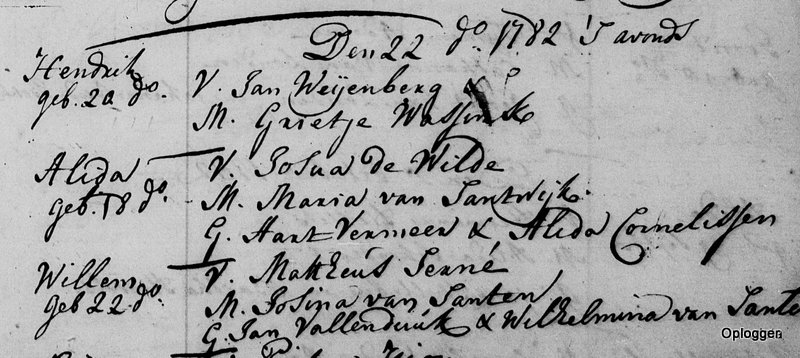 Den 22 do. 1782 'S avonds
Hendrik V. Jan Weijenberg &
geb. 20 do. M. Grietje Wassink
Alida V. Josua de Wilde
geb. 18 do. M. Maria van Santwijk.
G. Hart Vermeer & Alida Cornelissen
Willem V. Mattheus Serné
geb 22 do. M. Josina van Santen
G. Jan Vallendúúk & Wilhelmina van Sante
Oploggen